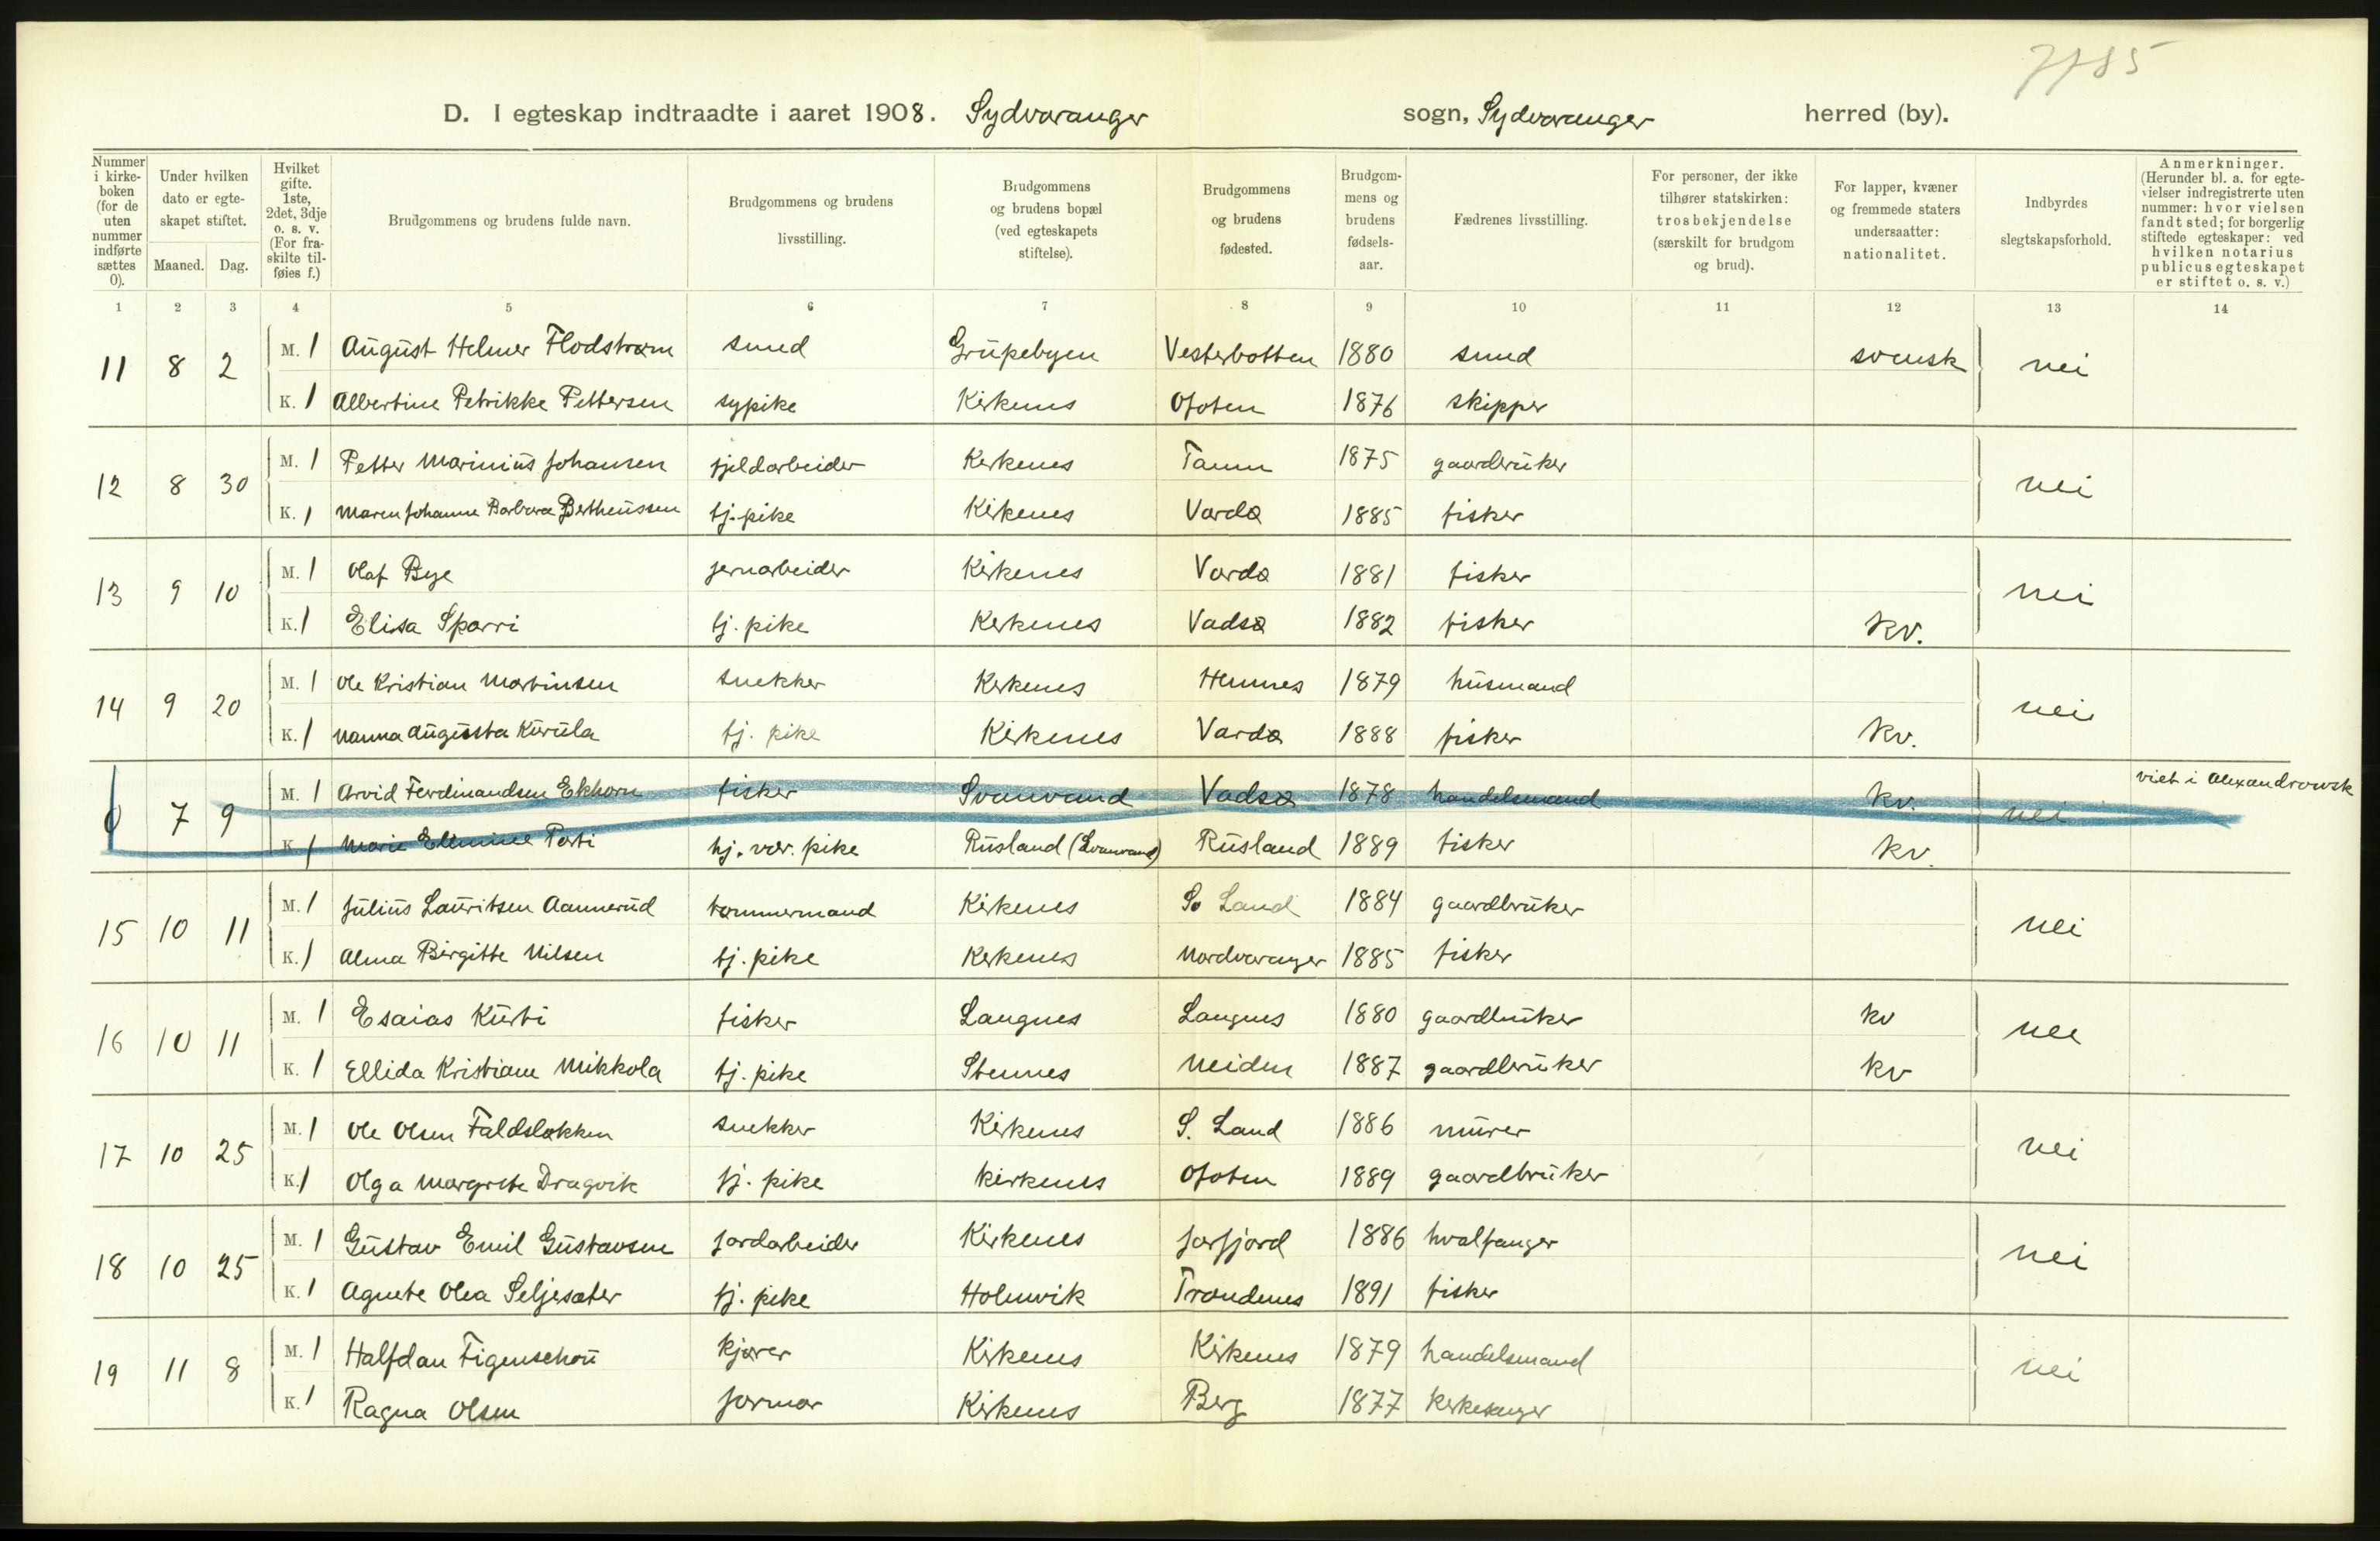 7785
D. I egteskap indtraadte i aaret 1908. Sydvaranger sogn, Sydvaranger herred (by).
Nummer i kirke-boken (for de uten nummer indførte sættes 0).
Under hvilken dato er egte-skapet stiftet.
Maaned. Dag.
Hvilket gifte. 1ste, 2det, 3dje o. s. v. (For fra-skilte til-føies f.)
Brudgommens og brudens fulde navn.
Brudgommens og brudens livsstilling.
Brudgommens og brudens bopæl (ved egteskapets stiftelse).
Brudgommens og brudens fødested.
Brudgom-mens og brudens fødsels-aar.
Fædrenes livsstilling.
For personer, der ikke tilhører statskirken: trosbekjendelse (særskilt for brudgom og brud).
For lapper, kvæner og fremmede staters undersaatter: nationalitet.
Indbyrdes slegtskapsforhold.
Anmerkninger. (Herunder bl. a. for egte-vielser indregistrerte uten nummer: hvor vielsen fandt sted; for borgerlig stiftede egteskaper: ved hvilken notarius publicus egteskapet er stiftet o. s. v.)
1 2 3 4 5 6 7 8 9 10 11 12 13 14
11 8 2 M. 1 August Helmer Flodstrøm smed Grubebyen Vesterbotten 1880 smed svensk nei
K. 1 Albertine Petrikke Pettersen sypike Kirkenes Ofoten 1876 skipper
12 8 30 M. 1 Petter Marinius Johansen fjeldarbeider Kirkenes Tanen 1875 gaardbruker nei
K. 1 Maren Johanne Barbara Bertheussen tj. pike Kirkenes Vardø 1885 fisker
13 9 10 M. 1 Olaf Bye jernarbeider Kirkenes Vardø 1881 fisker nei
K. 1 Elisa Sparri tj. pike Kirkenes Vadsø 1882 fisker kv.
14 9 20 M. 1 Ole Kristian Martinsen snekker Kirkenes Hemnes 1879 husmand nei
K. 1 Nanna Augusta Kurula tj. pike Kirkenes Vardø 1888 fisker kv.
0 7 9 M. 1 Arvid Ferdinandsen Ekhorn fisker Svanvand Vadsø 1878 handelsmand kv. nei viet i Alexandrowsk
K. 1 Marie Elenine Porti hj. vær. pike Rusland (Svanvand) Rusland 1889 fisker kv.
15 10 11 M. 1 Julius Lauritsen Aannerud tømmermand Kirkenes So Land 1884 gaardbruker nei
K. 1 Alma Birgitte Nilsen tj. pike Kirkenes Nordvaranger 1885 fisker
16 10 11 M. 1 Esaias Kurti fisker Langnes Langnes 1880 gaardbruker kv nei
K. 1 Ellida Kristiane Mikkola tj. pike Stennes Neiden 1887 gaardbruker kv
17 10 25 M. 1 Ole Olsen Faldsløkken snekker Kirkenes S. Land 1886 murer nei
K. 1 Olga Margrete Dragvik tj. pike Kirkenes Ofoten 1889 gaardbruker
18 10 25 M. 1 Gustav Emil Gustavsen jordarbeider Kirkenes Jarfjord 1886 hvalfanger nei
K. 1 Agnete Olea Seljesæter tj. pike Holmvik Trondenes 1891 fisker
19 11 8 M. 1 Halfdan Figenschou kjører Kirkenes Kirkenes 1879 handelsmand nei
K. 1 Ragna Olsen jormor Kirkenes Berg 1877 kirkesanger